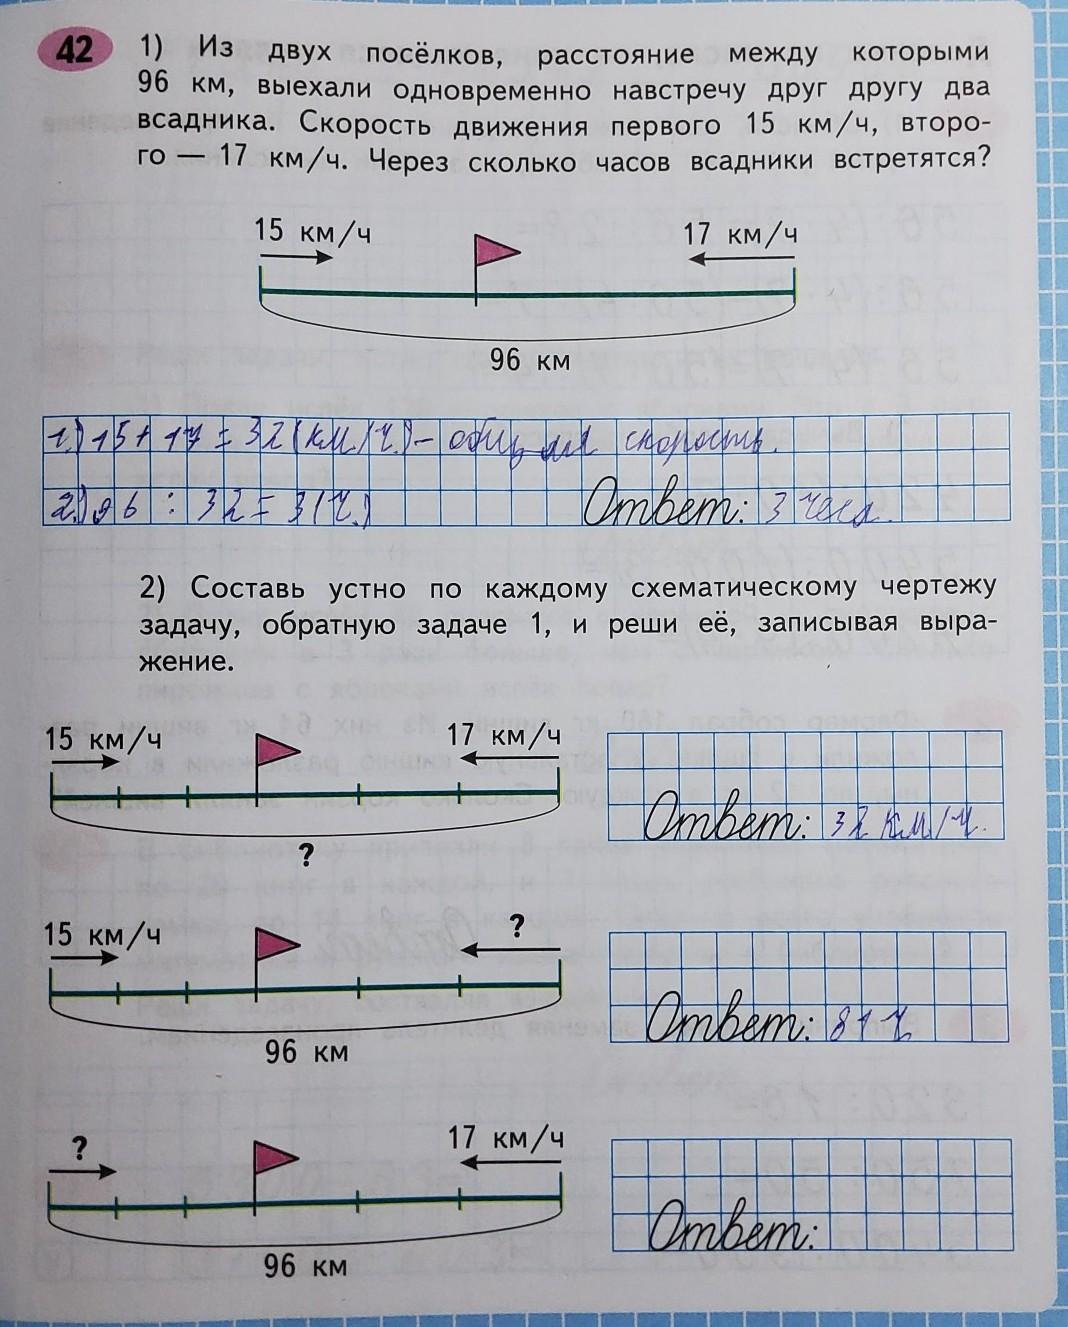 42 1) Из двух посёлков, расстояние между которыми
96 км, выехали одновременно навстречу друг другу два
всадника. Скорость движения первого 15 км/ч, второ-
го — 17 км/ч. Через сколько часов всадники встретятся?
15 км/ч 17 км/ч
96 км
1.) 15 + 17 = 32 (км/ч.) – общая скорость.
2.) 96 : 32 = 3 (ч.) Ответ: 3 часа.
2) Составь устно по каждому схематическому чертежу
задачу, обратную задаче 1, и реши её, записывая выра-
жение.
15 км/ч 17 км/ч
?
Ответ: 32 км/ч.
15 км/ч ?
96 км
Ответ: 81 ч
? 17 км/ч
96 км
Ответ: